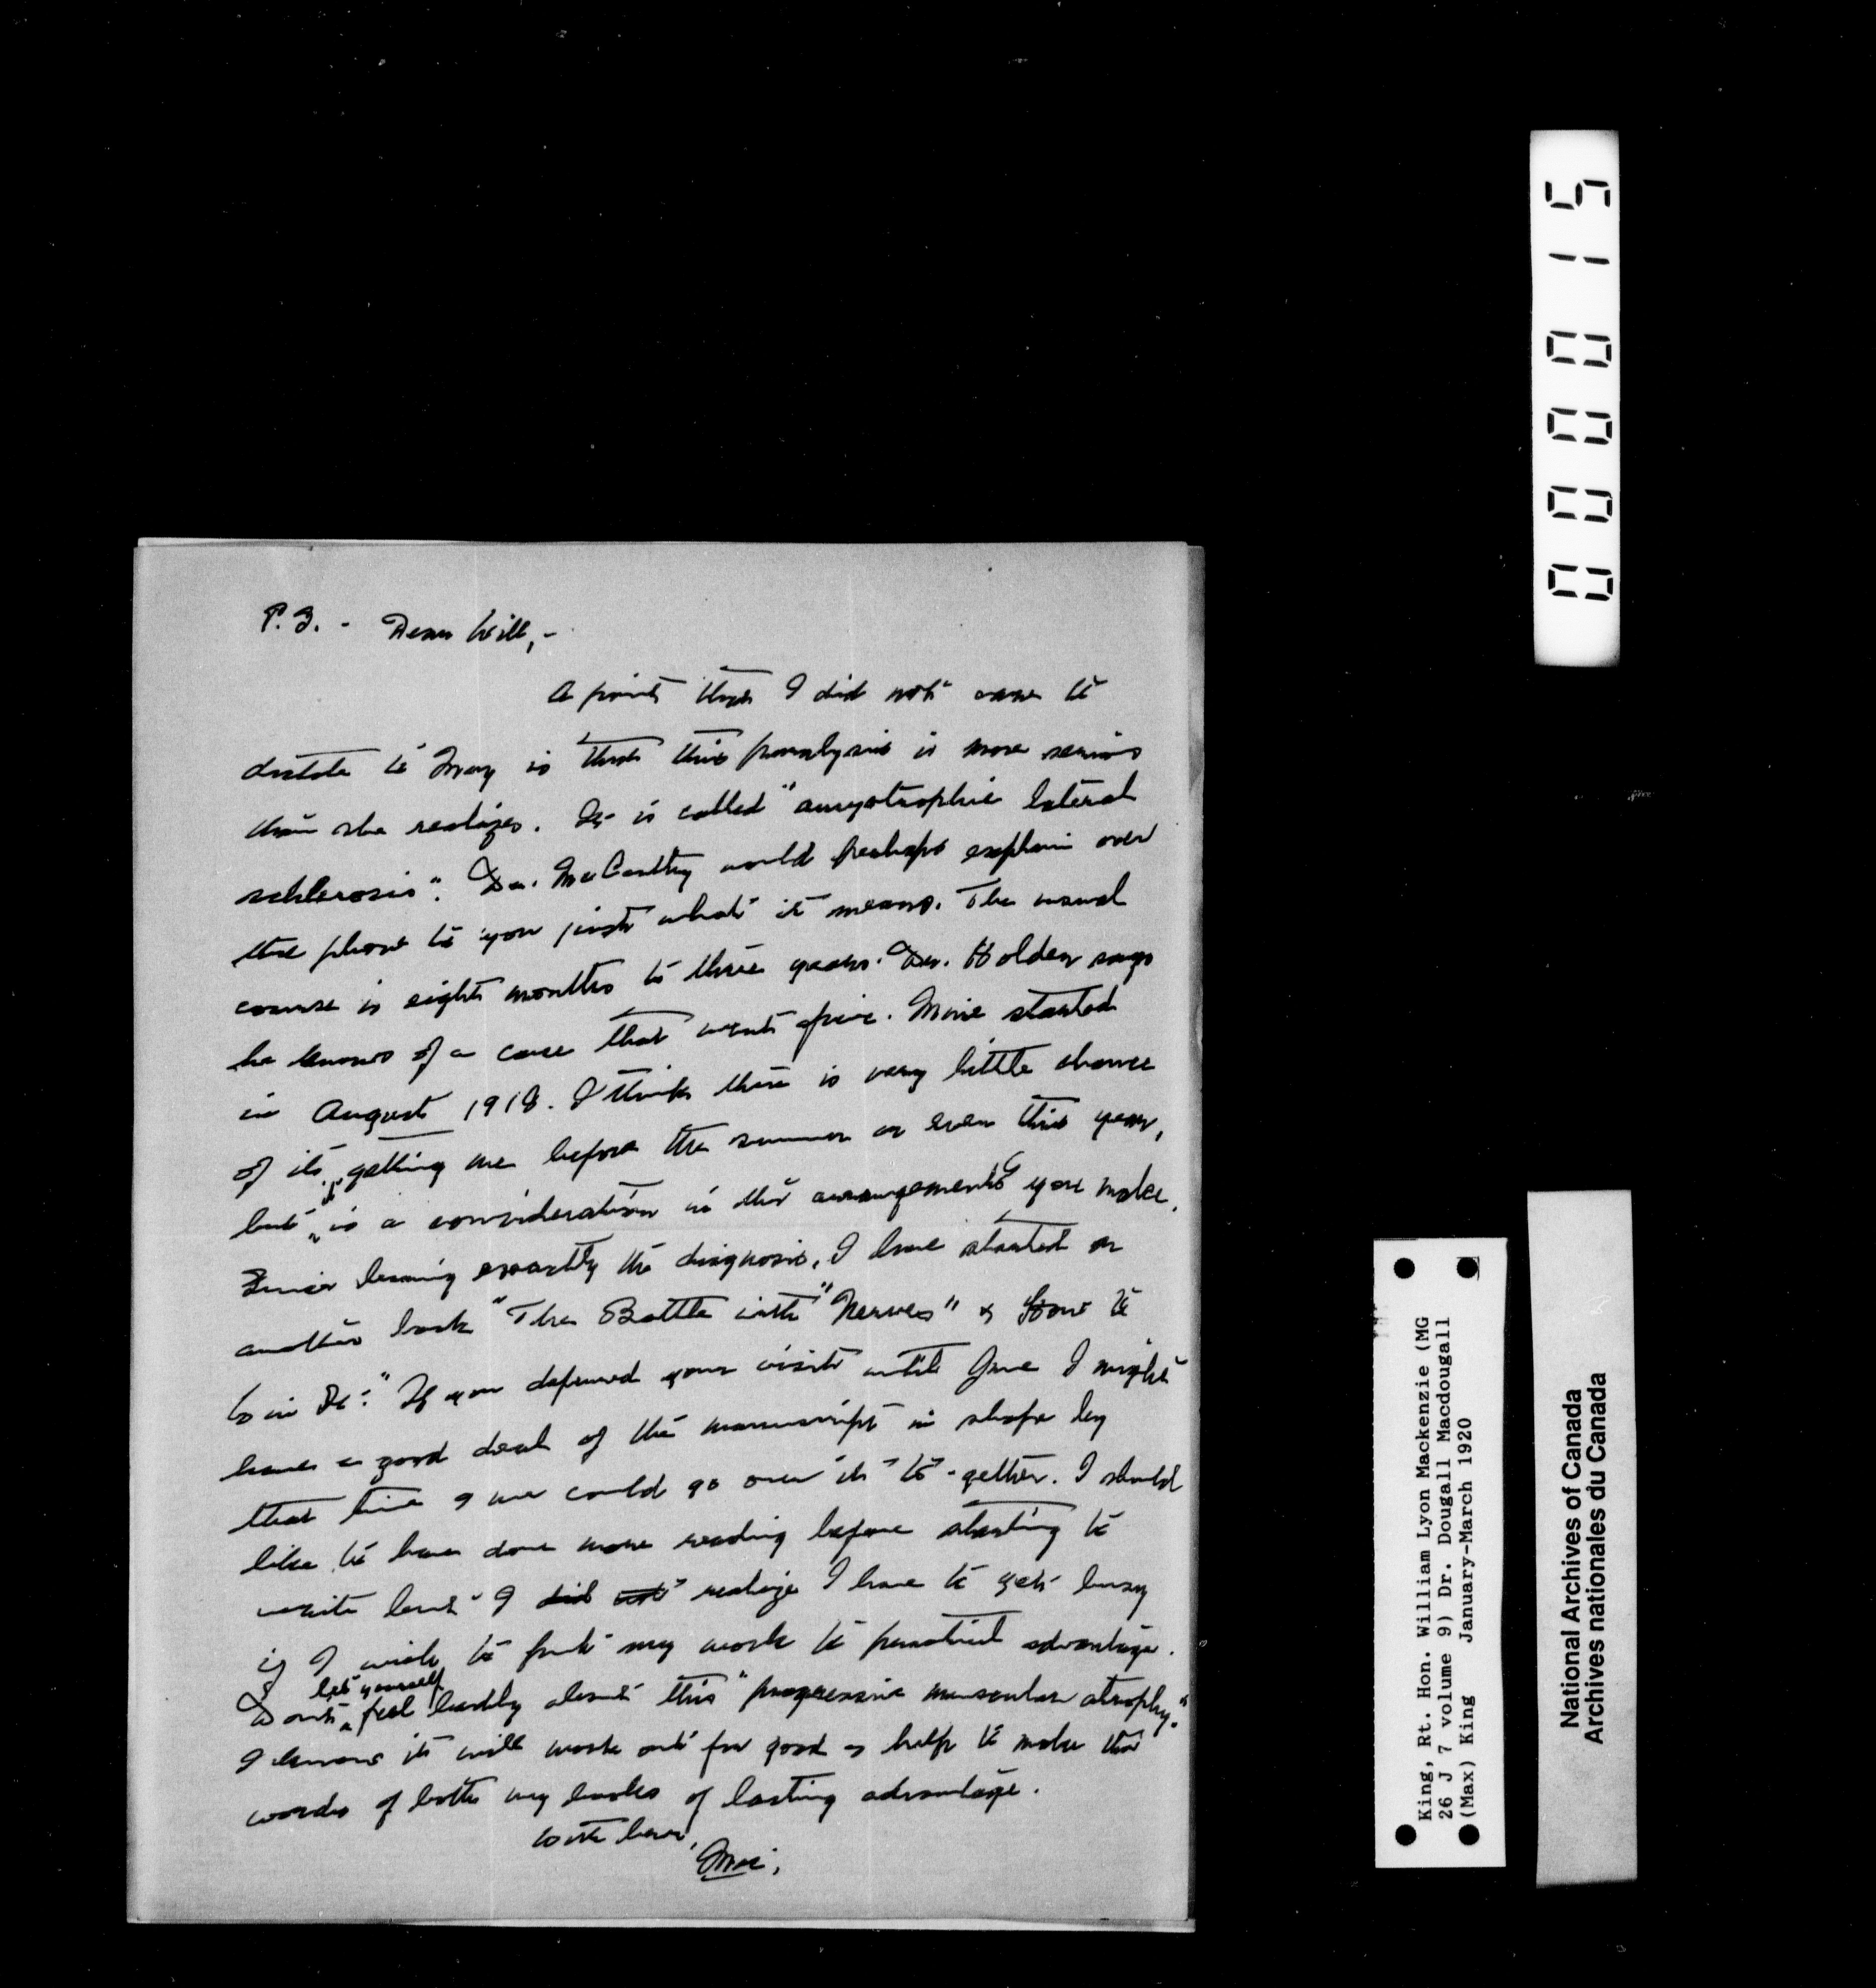 P.S. - Dear Will, -
A point that I did not care to
dictate to May is that this paralysis is more serious
than she realizes. It is called "amyotrophic lateral
schlerosis". Dr. McCarthy would perhaps explain over
the phone to you just what it means. The usual
course is eight months to three years. Dr. Holden says
he knows of a case that went five. Mine started
in August 1918. I think there is very little chance
of its getting me before the summer or even this year,
but it is a consideration in the arrangements you make.
Since learning exactly the diagnosis, I have started on
another book "The Battle with "Nerves" & How to
Win It." If you deferred your visit until June I might
have a good deal of the manuscript in shape by
that time & we could go over it to-gether. I should
like to have done more reading before starting to
write but I did not realize I have to get busy
if I wish to put my work to practical advantage.
Don't let yourself feel badly about this "progressive muscular atrophy."
I know it will work out for good & help to make the
words of both my books of lasting advantage.
With love,
Max.
000015
King, Rt. Hon. William Lyon Mackenzie (MG
26 J 7 volume 9) Dr. Dougall Macdougall
(Max) King January-March 1920
National Archives of Canada
Archives nationales du Canada